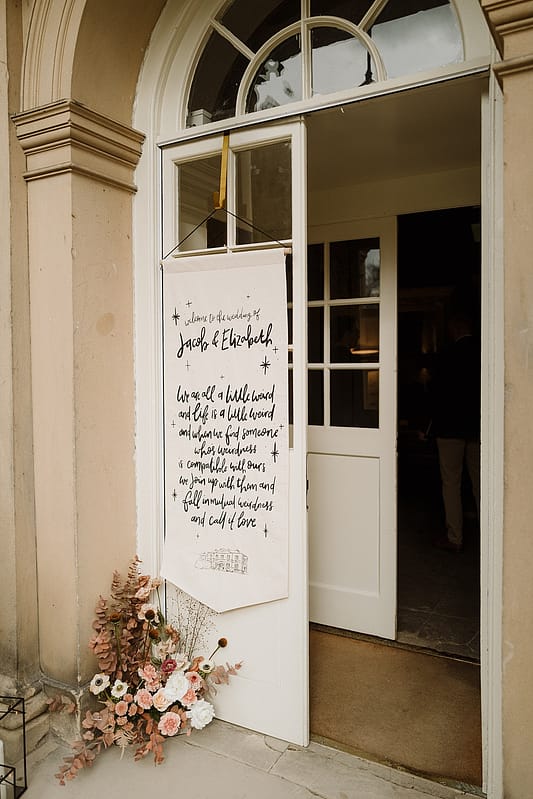 welcome to the wedding of
Jacob & Elizabeth
We are all a little weird
and life is a little weird
and when we find someone
whos weirdness
is compatible with ours
we join up with them and
fall in mutual weirdness
and call it love